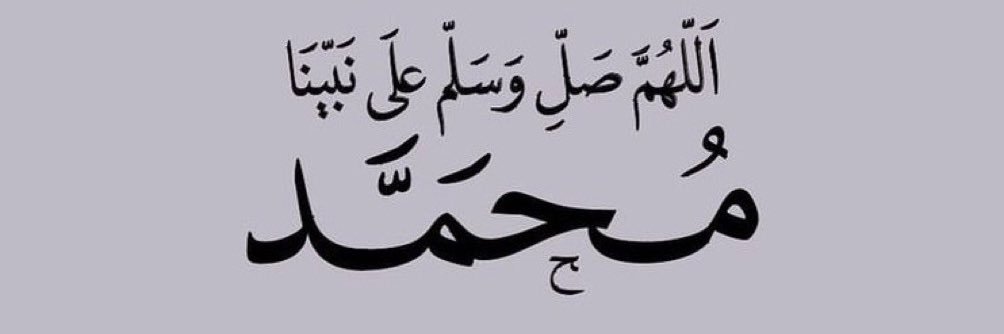 اَللّهُمَّ صَلِّ وَسَلّم علَى نَبيّنَا
مُحَمَّد